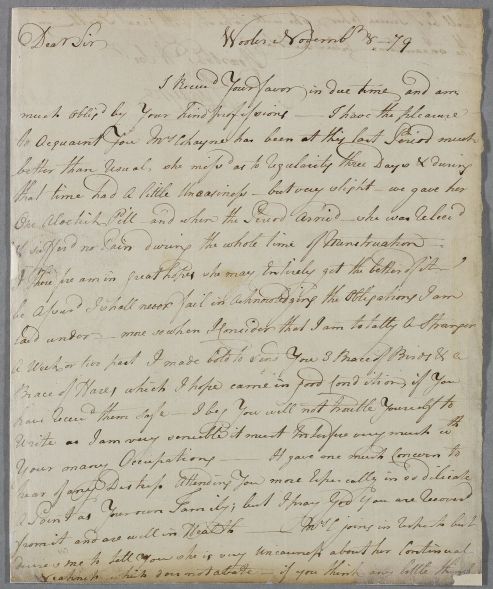 Dear Sir Wooler Novembr 8 - 79
I Receivd Your favor in due time and am
much obligd by Your kind professions — I have the pleasure
to Acquaint You Mrs Chayne has been at this last Period much
better than Usual, she misd as to regularity three Days & during
that time had A little Uneasiness — but very slight — we gave her
One Aloetick Pill — and when the Period arrivd — she was Relievd
& sufferd no Pain during the whole time of Menstruation —
I therefore am in great hopes she may Entirely get the better of it —
be Assurd I shall never fail in Acknowledging the Obligations I am
laid under — more so when I Consider that I am totally A Stranger
A Week or two past I made bold to Send You 3 Brace of Birds & a
Brace of Hares which I hope came in good Condition, if You
have Receivd them Safe — I beg You will not trouble Yourself to
Write as I am very sensible it must Interfere very much wth
Your many Occupations — It gave me much Concern to
hear of any Distress Attending You more Especially in so delicate
A Point as Your own Family; but I pray God You are Recoverd
from it and are well in Health — Mrs C joins in respects but
desires me to tell You she is very Uneasy about her Continual
Weakness which does not abate — if you think any little